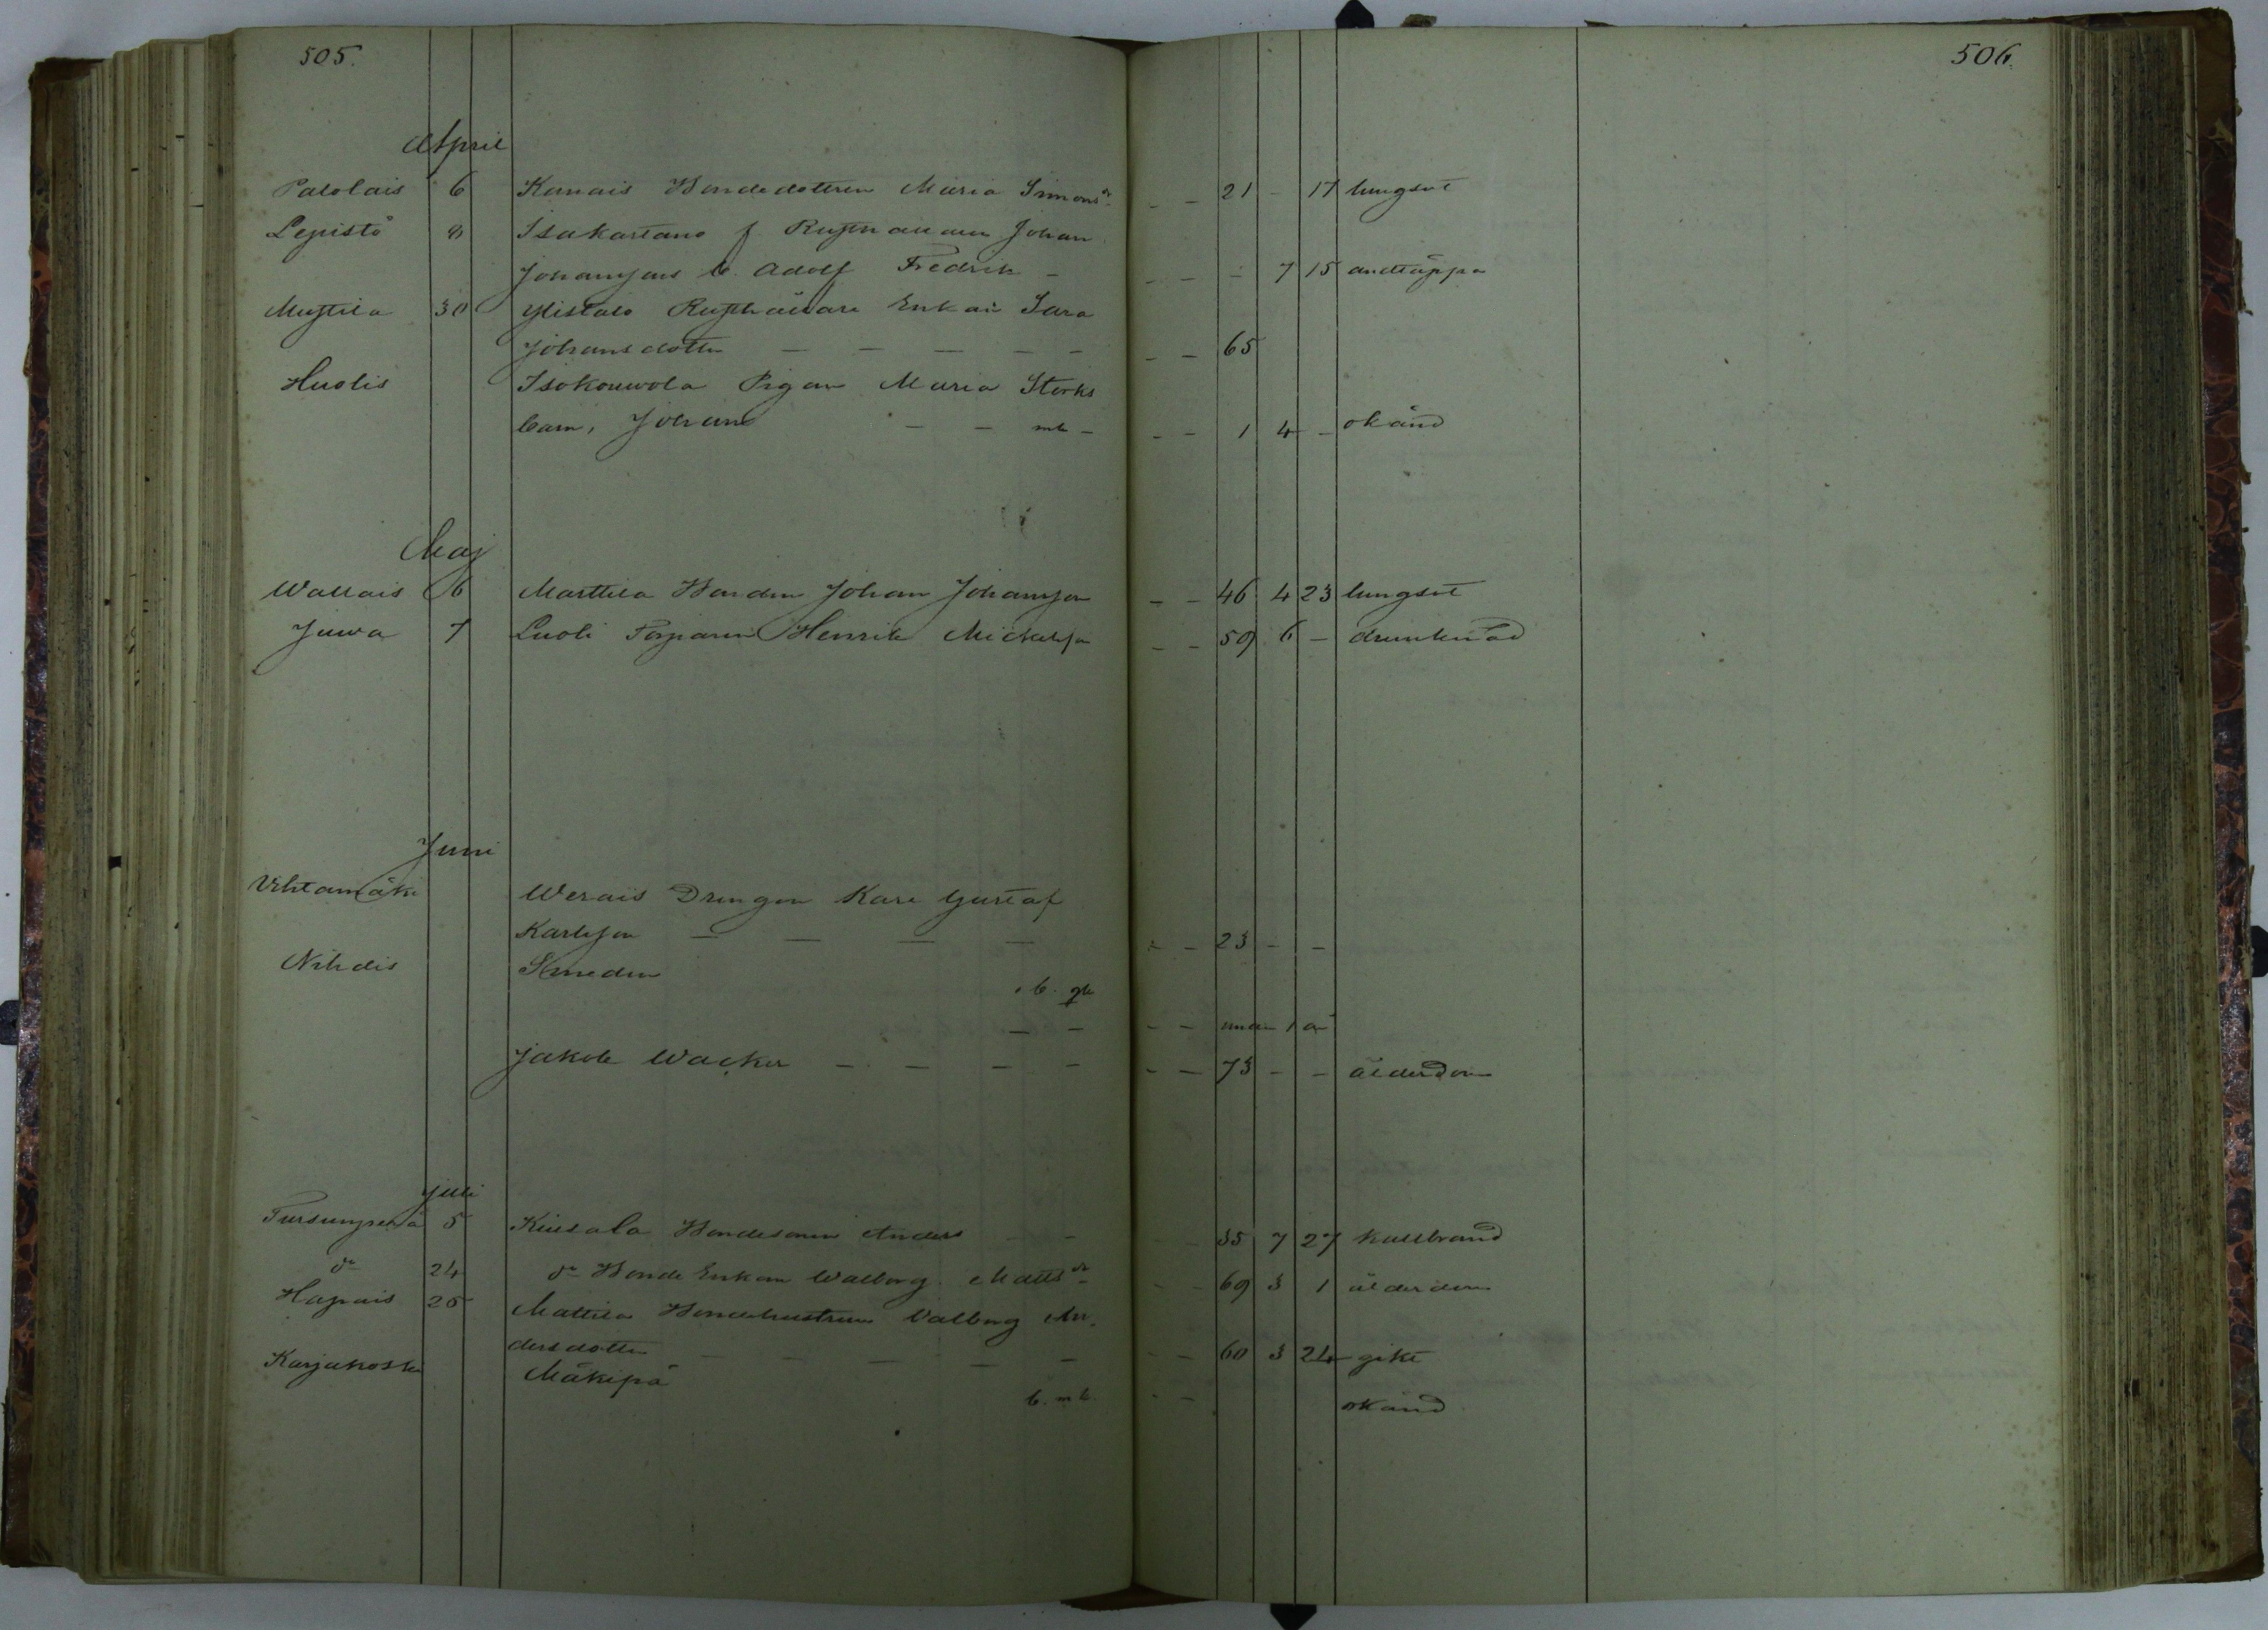 505.
506.
April
Palolais 6 Kanais Bondedottren Maria Simonsdr - - 21 - 17 lungsot
Lepistö 8 Isakartano f. Rusthållaren Johan
Johansson b. Adolf Fredrik - - - - 7 15 andtäppa
Myttila 30 Ylistalo Rusthållare Enkan Sara
Johansdotter - - - - - - - 65
Huolis Isokouwola Pigan Maria Storks
barn, Johan - - mk - - - 1 4 - okänd
Maj
Wallais 6 Marttila Bonden Johan Johansson - - 46 4 23 lungsot
Juwa 7 Luoli Torparen Henrik Mickelsson - - 59 6 - drunknad
Juni
Vihtamäki Werais Drengen Karl Gustaf
Karlsson - - - - - - 23 - -
Nihdis Smeden
b. qk
- - - - under 1 år
Jakob Wacker - - - - - - 73 - - ålderdom
Juli
Tursunperä 5 Kiusala Bondesonen Anders - - - 35 7 27 kallbrand
do 24 do Bonde Enkan Walborg Mattsdr - - 69 3 1 ålderdom
Hapais 25 Mattila Bondehustrun Valborg An-
dersdotter - - - - - - 60 3 24 gikt
Karjakoski Mäkipä
b. mk. - - okänd